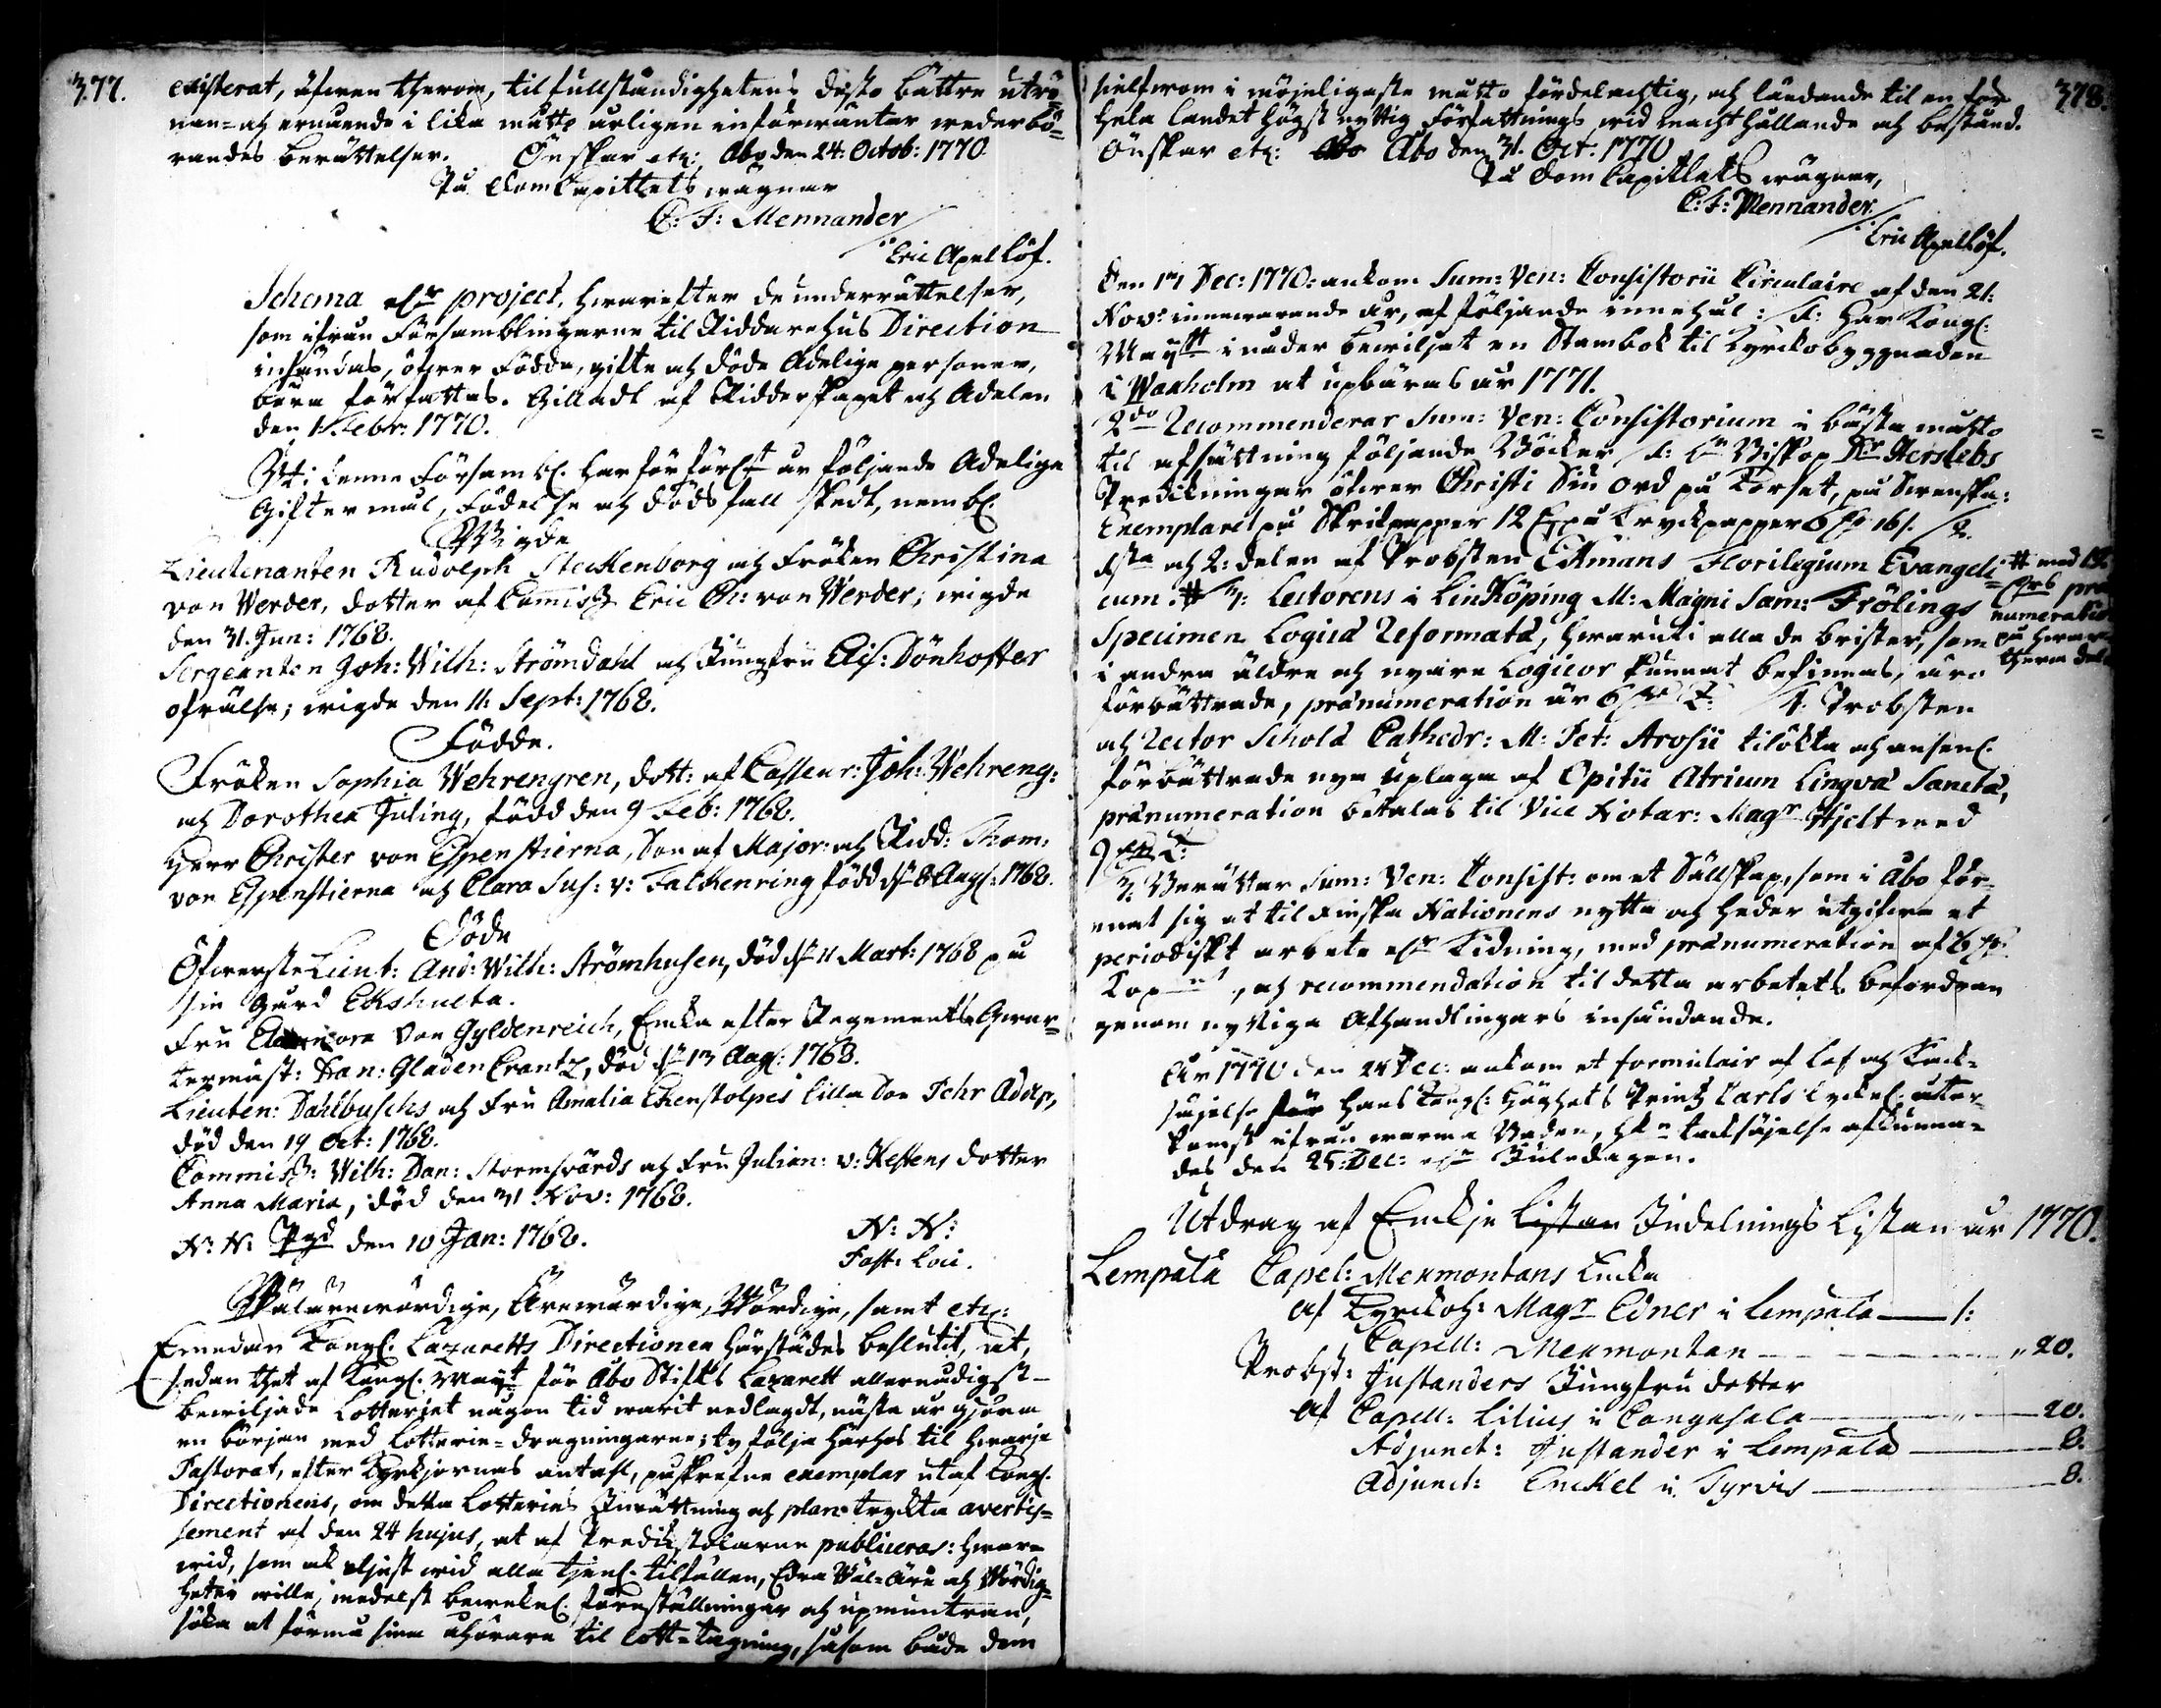 377.
existerat, äfwen therom, til fullständighetens desto bättre utrö=
nan= och ernående i lika måtto årligen inforwäntar wederbö=
randes berättelser. Önskar etc: Åbo den 24. Octob: 1770.
På DomCapittlets wägnar
C: F: Mennander
/Eric Apellöf.
Schema elr project, hwarefter de underrättelser,
som ifrån Församblingarne til Riddarehus Direction
insändas, öfwer Födde, gifte och döde Adelige personer,
böra författas. Gilladt af Ridderskapet och Adelen
den 1 Febr: 1770.
Uti denne Försambl. har för förl:t år följande Adelige
Giftermål, Födelse och dödsfall skedt, nembl.
Wigde
Lieutenanten Rudolph Steckenborg och Fröken Christina
von Werder, dotter af Commiss Eric Ch: von Werder; wigde
den 31. Jun: 1768.
Sergeanten Joh: Wilh: Strömdahl och Jungfru Elis: Dönhofter
ofrälse; wigde den 11. Sept: 1768.
Födde.
Fröken Sophia Wehrengren, dott: af Casseur: Joh: Wehreng:
och Dorothea Juling, född den 9 Feb: 1768.
Herr Christer von Espenstierna, Son af Major: och Ridd: Thom:
von Espenstierna och Clara Sus: v: Falckenring född d. 8 Aug: 1768.
Döde
Öfwerste Lieut: And: Wilh: Strömhusen, död d. 11 Mart: 1768 på
sin gård Ekshulta.
Fru Eleonora von Gyldenreich, Encka efter Regements Qwar=
termäst: Dan: Gladen Crantz, död d. 13 Aug: 1768.
Lieuten: Dahlbuschs och Fru Amalia Ekenstolpes lilla Son Fehr Adolp,
död den 19 Oct: 1768.
Commiss: Wilh: Dan: Stormswärds och Fru Julian: v: Kestens dotter
Anna Maria, död den 31 Nov: 1768.
N: N: Pgd den 10 Jan: 1768. N: N:
Past: Loci.
Wäl ärewördige, Ärewärdige, Wördige, samt etc:
Emedan Kongl. Lazaretts Directionen härstädes beslutit, at,
sedan thet af Kongl. Mayt för Åbo Stifts Lazarett allernådigst
bewiljade Lotteriet någon tid warit nedlagdt, nästa år gjöra
en början med Lotterie=dragningarne; ty följa härhos til hwarje
Pastorat, efter Kyrkjornas antahl, påskrefne exemplar utaf Kongl.
Directionens, om detta Lotteries Inrättning och plan tryckta avertis=
sement af den 24 hujus, at af Predikstolarne publiceras: hwar=
wid, som ock eljest wid alla tjenl. tilfällen, Edra Wäl=Äre och Wördig=
heter wille, medelst bewekel. föreställningar och upmuntran,
söka at förmå sina åhörare til lott=tagning, såsom både dem
378.
sielfwom i möjeligaste måtto fördelachtig, och ländande til en för
hela landet högst nyttig Författnings wid macht hållande och bestånd.
Önskar etc: Åbo den 31. Oct: 1770
På Dom Capittlets wägnar,
C: F: Mennander
/Eric Apellöf.
Den 17 Dec: 1770: ankom Sum: Ven: Consistorii Circulaire af den 21.
Nov: innewarande år, af följande innehåll: 1: Har Kongl.
Maytt i nåder bewiljat en Stambok til Kyrckobyggnaden
i Waxholm at upbäras år 1771.
2do Recommenderar Sum: Ven: Consistorium i bästa måtto
til afsättning följande Böcker 1: Biskop Dr Herslebs
Predikningar öfwer Christi Siu Ord på Korset, på Swenska:
Exemplaret på Skrifpapper 12 på Tryckpapper 6 16/. 2.
1sta och 2: delen af Probsten Ekmans Florilegium Evangeli=
cum. # 3: Lectorens i Linköping M: Magni Sam: Frölings
# med
pre
numeration
på hwar
thera del
Specimen Logicæ Reformatæ, hwaruti alla de brister, som
i andra äldre och nyare Logicor kunnat befinnas, äro
förbättrade, prænumeration är 6 4. Probsten
och Rector Scholæ Cathedr: M: Pet: Arosii tilökta och ansenl.
förbättrade nya uplaga af Opitii Atrium Lingvæ Sanctæ,
prænumeration betalas til Vice Notar: Magr Hjelt med
9
3. Berättar Sum: Ven: Consist: om et Sällskap, som i Åbo för=
enat sig at til Finska Nationens nytta och heder utgifwa et
periodiskt arbete elr Tidning, med prænumeration af 6
Kop , och recommendation til detta arbetets befordran
genom nyttiga Afhandlingars insändande.
År 1770 den 24 Dec: ankom et formulair af Lof och Tack=
säjelse för Hans Kongl: Höghets Printz Carls lyckel. åter=
komst ifrån warma Baden, hkn tacksäjelse afkunna=
des den 25. Dec: elr Juledagen.
Utdrag af Enckje Listan Indelnings Listan år 1770.
Lempälä Capel: Mexmontans Encka
Af Kyrckoh: Magr Edner i Lempälä — 1:
Capell: Mexmontan — „ 20.
Probst: Justanders Jungfru dotter
Af Capell: Lilius i Cangasala — „ — 20.
Adjunct: Justander i Lempälä — 8.
Adjunct: Enckel i Tyrvis — 8.